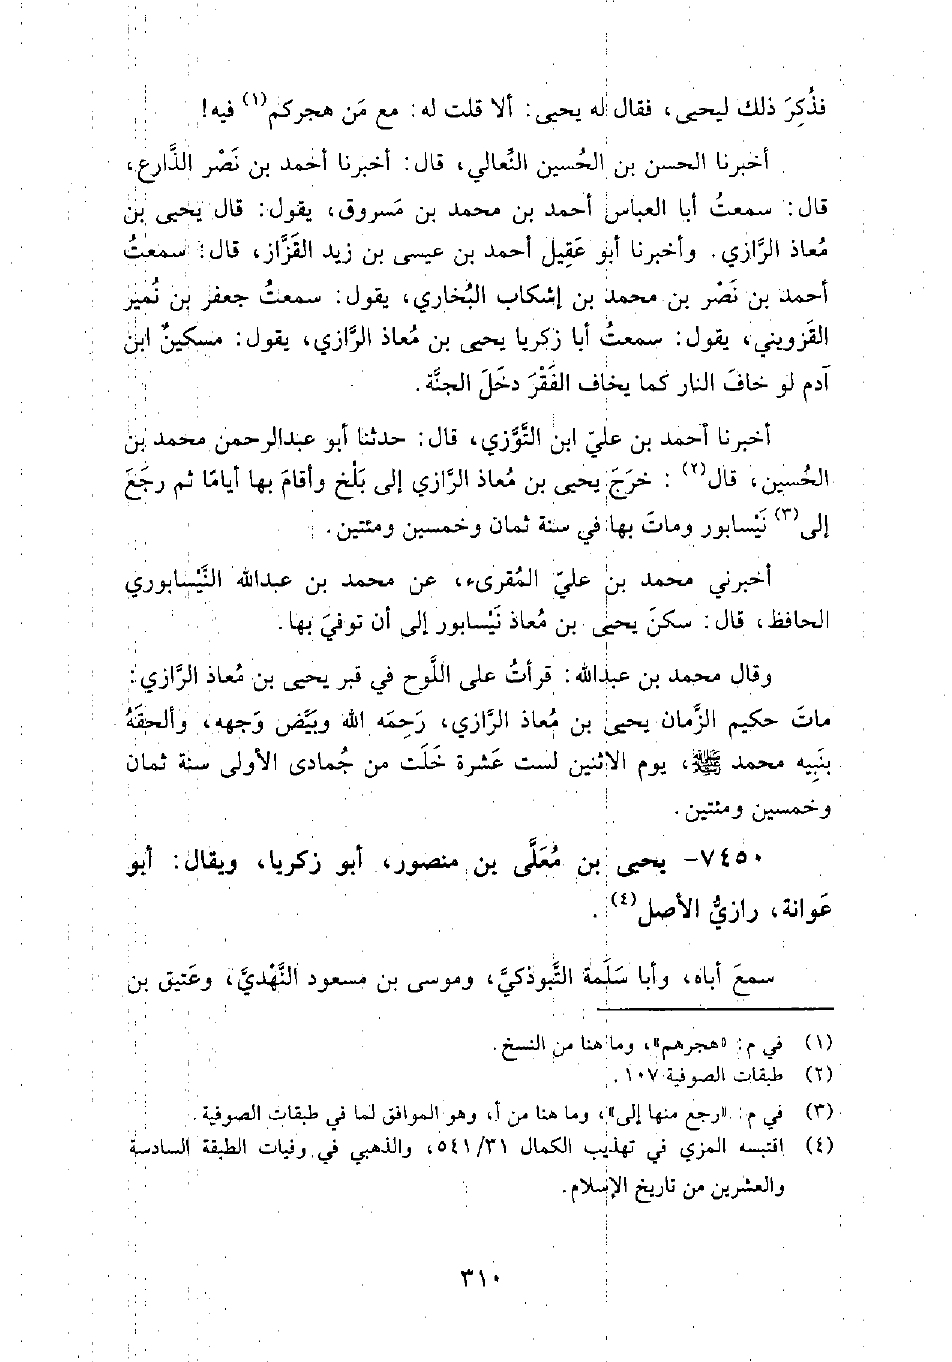 فذُكِرَ ذلك ليحيى، فقال له يحيى: ألا قلت له: مع مَن هجركم(١) فيه!
أخبرنا الحسن بن الحُسين النِّعالي، قال: أخبرنا أحمد بن نَصْر الذَّارع،
قال: سمعتُ أبا العباس أحمد بن محمد بن مَسروق، يقول: قال يحيى بن
مُعاذ الرَّازي. وأخبرنا أبو عَقِيل أحمد بن عيسى بن زيد القَزَّاز، قال: سمعتُ
أحمد بن نَصْر بن محمد بن إشكاب البُخاري، يقول: سمعتُ جعفر بن نُمير
القَزويني، يقول: سمعتُ أبا زكريا يحيى بن مُعاذ الرَّازي، يقول: مسكينٌ ابن
آدم لو خافَ النار كما يخاف الفَقْرَ دخَلَ الجنَّة.
أخبرنا أحمد بن عليّ ابن التَّوَّزي، قال: حدثنا أبو عبدالرحمن محمد بن
الحُسين، قال(٢): خرَجَ يحيى بن مُعاذ الرَّازي إلى بَلْخ وأقامَ بها أيامًا ثم رجَعَ
إلى(٣) نَيْسابور وماتَ بها في سنة ثمان وخمسين ومئتين.
أخبرني محمد بن عليّ المُقرىء، عن محمد بن عبدالله النَّيْسابوري
الحافظ، قال: سكنَ يحيى بن مُعاذ نَيْسابور إلى أن توفيَ بها.
وقال محمد بن عبدالله: قرأتُ على اللَّوح في قبر يحيى بن مُعاذ الرَّازي:
ماتَ حكيم الزَّمان يحيى بن مُعاذ الرَّازي، رَحِمَه الله وبَيَّض وَجهه، وألحقَهُ
بنَبِيه محمد ﷺ، يوم الاثنين لست عَشرة خَلَت من جُمادى الأولى سنة ثمان
وخمسين ومئتين.
٧٤٥٠- يحيى بن مُعَلَّى بن منصور، أبو زكريا، ويقال: أبو
عَوانة، رازيُّ الأصل(٤).
سمعَ أباه، وأبا سَلَمة التَّبوذكيَّ، وموسى بن مسعود النَّهْديَّ، وعَتيق بن
(١) في م: «هجرهم»، وما هنا من النسخ.
(٢) طبقات الصوفية ١٠٧.
(٣) في م: «رجع منها إلى»، وما هنا من أ، وهو الموافق لما في طبقات الصوفية.
(٤) اقتبسه المزي في تهذيب الكمال ٣١/ ٥٤١، والذهبي في وفيات الطبقة السادسة
والعشرين من تاريخ الإسلام.
٣١٠